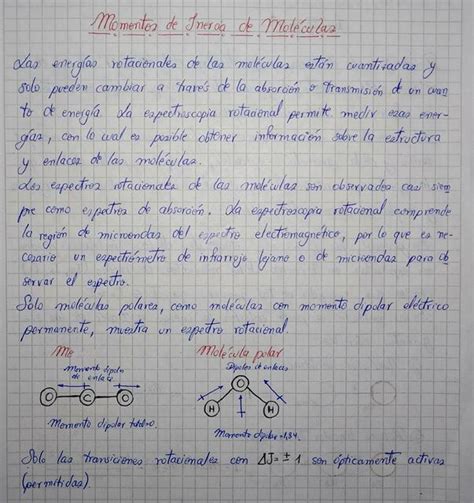 Momentos de Inercia de Moléculas
Las energías rotacionales de las moléculas están cuantizadas y
solo pueden cambiar a través de la absorción o transmisión de un cuan
to de energía. La espectroscopia rotacional permite medir esas ener-
gías, con lo cual es posible obtener información sobre la estructura
y enlaces de las moléculas.
Los espectros rotacionales de las moléculas son observados casi siem
pre como espectros de absorción. La espectroscopia rotacional comprende
la región de microondas del espectro electromagnético, por lo que es ne-
cesario un espectrómetro de infrarrojo lejano o de microondas para ob
servar el espectro.
Solo moléculas polares, como moléculas con momento dipolar eléctrico
permanente, muestra un espectro rotacional.
Mo
Molécula polar
Momento dipolar
de enlace
Dipolos de enlaces
O C O
O
H H
Momento dipolar total=0.
Momento dipolar=1,84.
Solo las transiciones rotacionales con ΔJ= ± 1 son ópticamente activas
(permitidas).